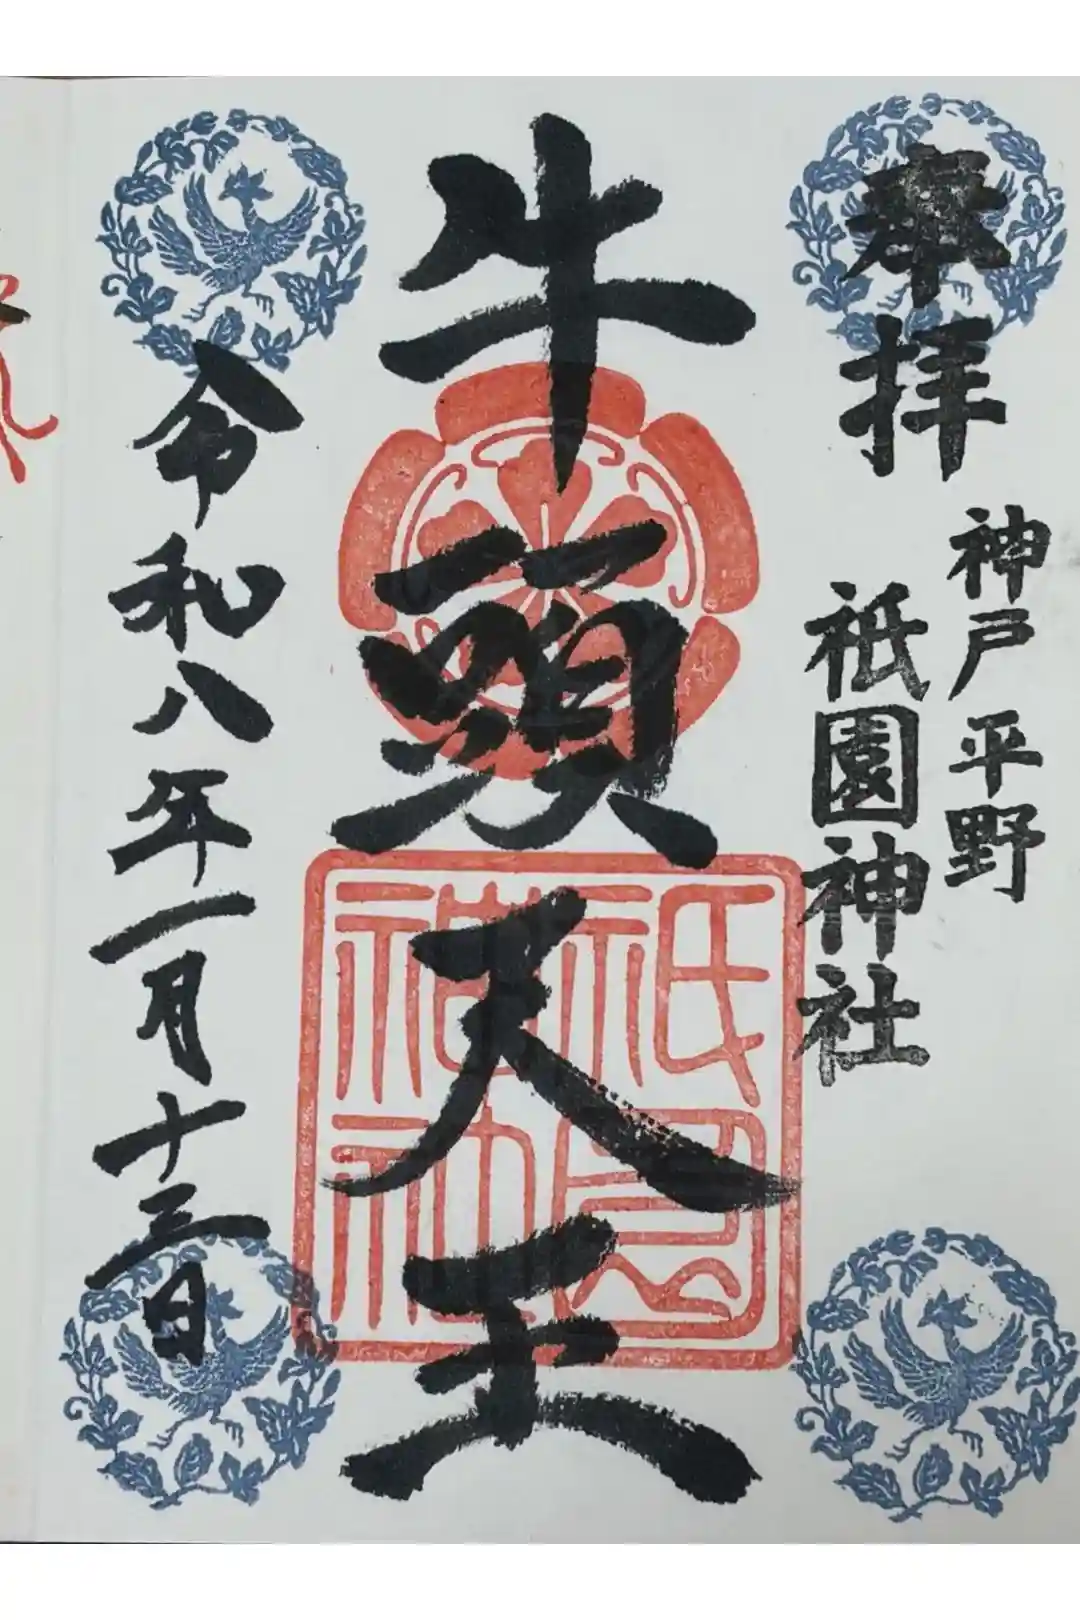 奉拝
神戸 平野
祇園神社
牛頭天王
祇園神社
令和八年一月十三日